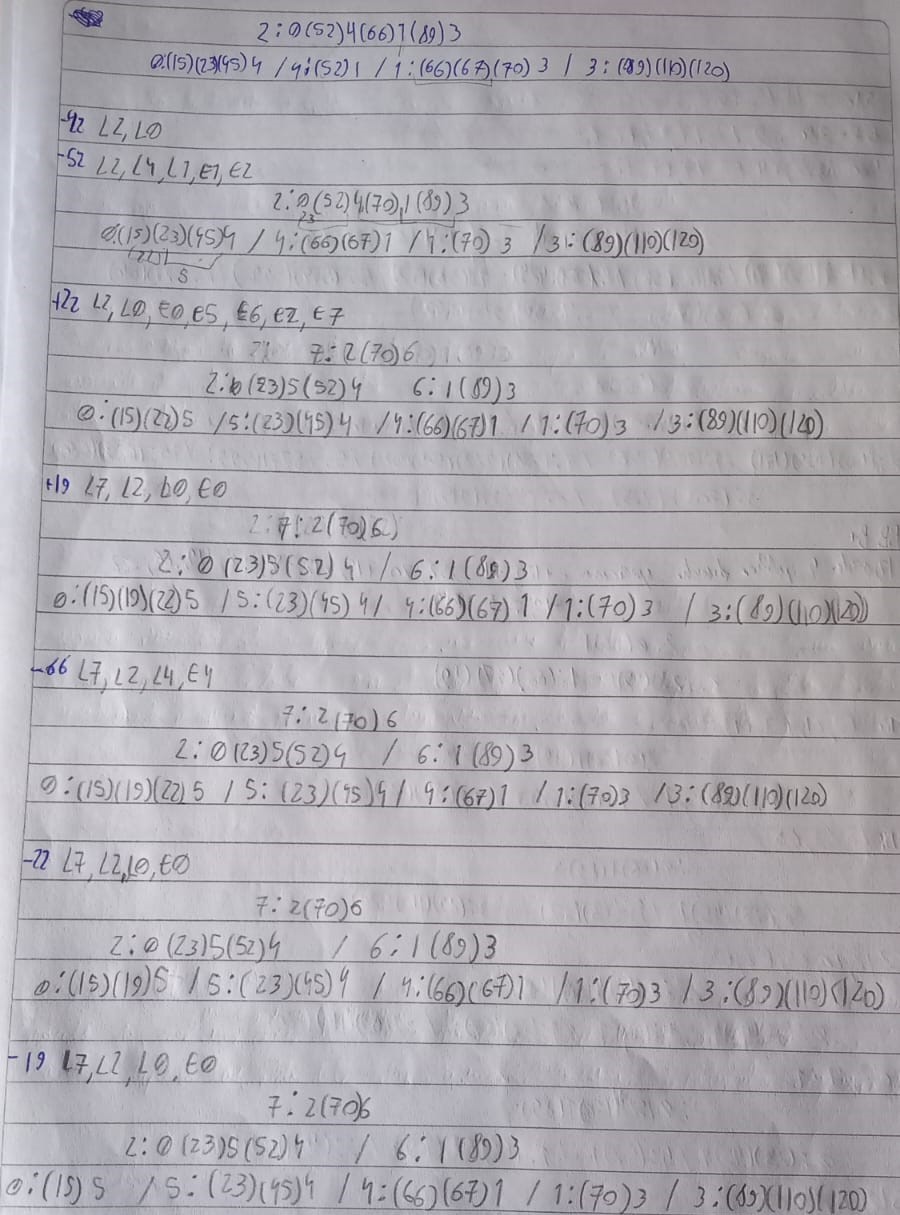 2:0(52)4(66)1(89)3
0:(15)(23)(45)4 / 4:(52)1 / 1:(66)(67)(70)3 / 3:(89)(110)(120)
-42 L2, L0
-52 L2, L4, L1, E1, E2
2:0(52)4(70)1(89)3
23
0:(15)(23)(45)4 / 4:(66)(67)1 / 1:(70)3 / 3:(89)(110)(120)
(22)
5
+22 L2, L0, E0, E5, E6, E2, E7
7:2(70)6
2:0(23)5(52)4 6:1(89)3
0:(15)(22)5 / 5:(23)(45)4 / 4:(66)(67)1 / 1:(70)3 / 3:(89)(110)(120)
+19 L7, L2, L0, E0
7:2(70)6
2:0(23)5(52)4 / 6:1(89)3
0:(15)(19)(22)5 / 5:(23)(45)4 / 4:(66)(67)1 / 1:(70)3 / 3:(89)(110)(120)
-66 L7, L2, L4, E4
7:2(70)6
2:0(23)5(52)4 / 6:1(89)3
0:(15)(19)(22)5 / 5:(23)(45)4 / 4:(67)1 / 1:(70)3 / 3:(89)(110)(120)
-22 L7, L2, L0, E0
7:2(70)6
2:0(23)5(52)4 / 6:1(89)3
0:(15)(19)5 / 5:(23)(45)4 / 4:(66)(67)1 / 1:(70)3 / 3:(89)(110)(120)
-19 L7, L2, L0, E0
7:2(70)6
2:0(23)5(52)4 / 6:1(89)3
0:(15)5 / 5:(23)(45)4 / 4:(66)(67)1 / 1:(70)3 / 3:(89)(110)(120)